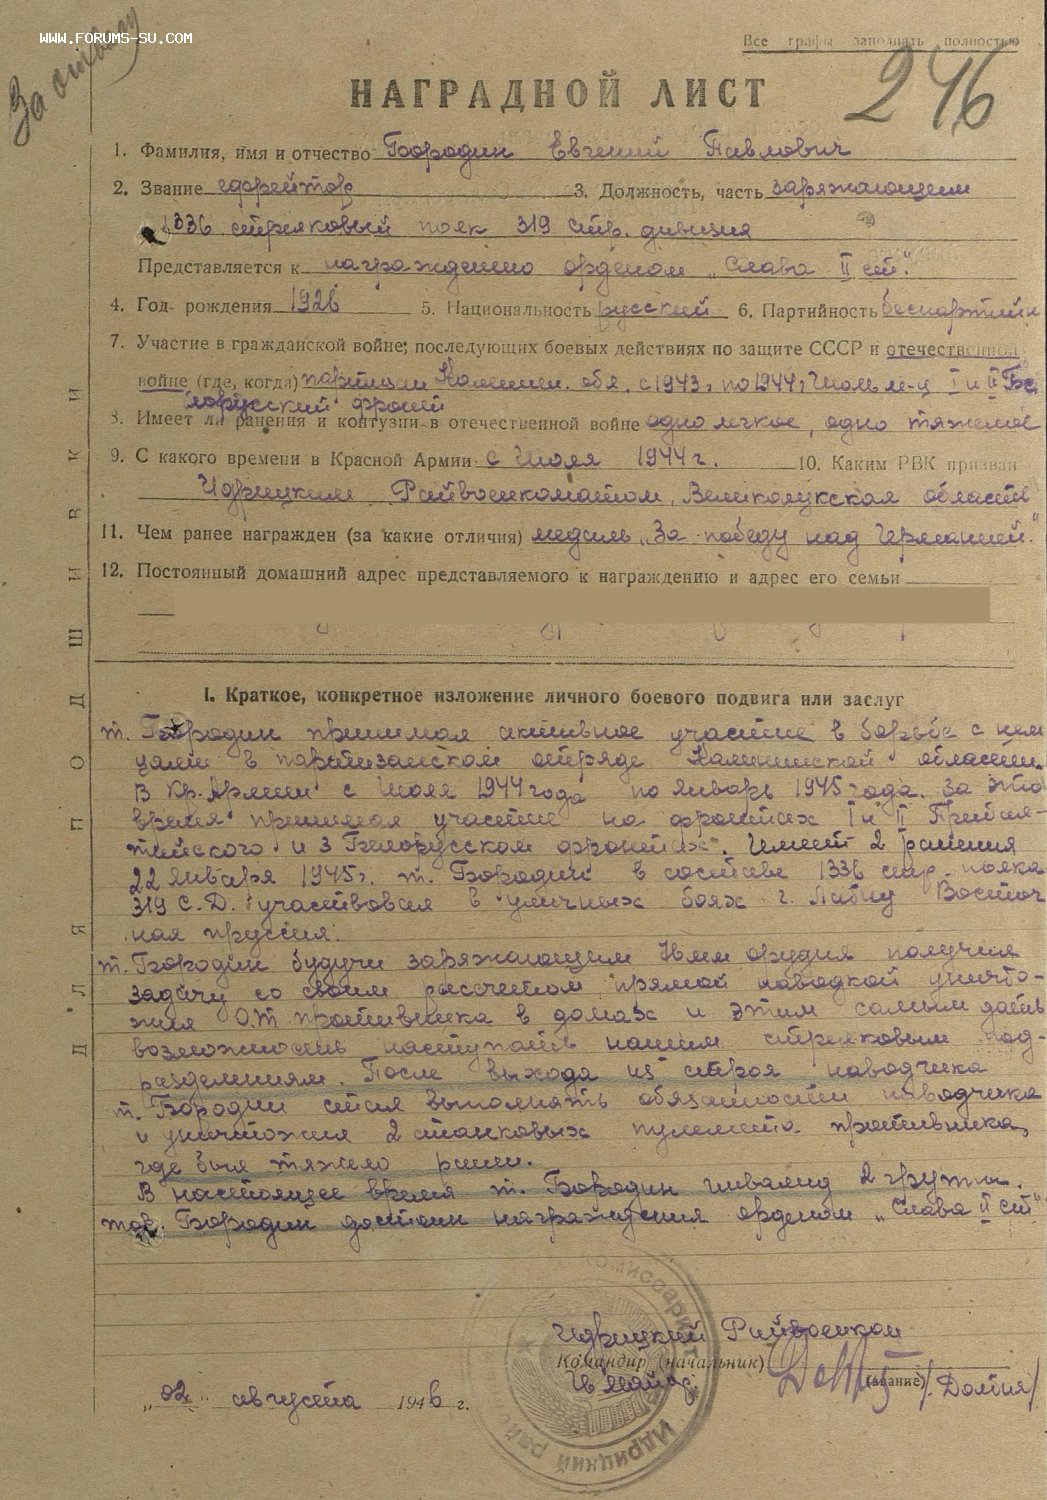 WWW.FORUMS-SU.COM
За отвагу
Все графы заполнять полностью
246
НАГРАДНОЙ ЛИСТ
1. Фамилия, имя и отчество Бородин Евгений Павлович
2. Звание ефрейтор 3. Должность, часть заряжающим
1336 стрелковый полк 319 стр. дивизия
Представляется к награждению орденом „Слава II ст."
4. Год рождения 1926 5. Национальность русский 6. Партийность беспартийн
7. Участие в гражданской войне; последующих боевых действиях по защите СССР и отечественной
войне (где, когда) партизан Калинин. обл. с 1943г по 1944г Июль м-ц I и II Бе
лорусский фронт
8. Имеет ли ранения и контузии в отечественной войне одно легкое, одно тяжелое
9. С какого времени в Красной Армии с Июля 1944 г. 10. Каким РВК призван
Идрицким Райвоенкоматом, Великолукская область
11. Чем ранее награжден (за какие отличия) медаль „За победу над Германией."
12. Постоянный домашний адрес представляемого к награждению и адрес его семьи
ДЛЯ ПОДШИВКИ
I. Краткое, конкретное изложение личного боевого подвига или заслуг
т. Бородин принимал активное участие в борьбе с нем
цами в партизанском отряде Калининской области
В Кр. Армии с Июля 1944 года по Январь 1945 года. За это
время принимал участие на фронтах I и II Прибал-
тийского и 3 Белорусском фронтах. Имеет 2 ранения
22 Января 1945 г. т. Бородин в составе 1336 стр. полка
319 С.Д. участвовал в уличных боях г. Лабиу Восточ
ная пруссия.
т. Бородин будучи заряжающим орудия получил
задачу со своим рассчетом прямой наводкой уничто-
жил О.Т. противника в домах и этим самым дать
возможность наступать нашим стрелковым под-
разделениям. После выхода из строя наводчика
т. Бородин стал выполнять обязанности наводчика
и уничтожил 2 станковых пулемета противника,
где был тяжело ранен.
В настоящее время т. Бородин инвалид 2 группы.
тов. Бородин достоин награждения орденом „Слава II ст"
Идрицкий Райвоенком
Командир (начальник)
Гв майор
(звание) /Долбня/
„02" августа 1946 г.
комиссариат
Идрицкий рай